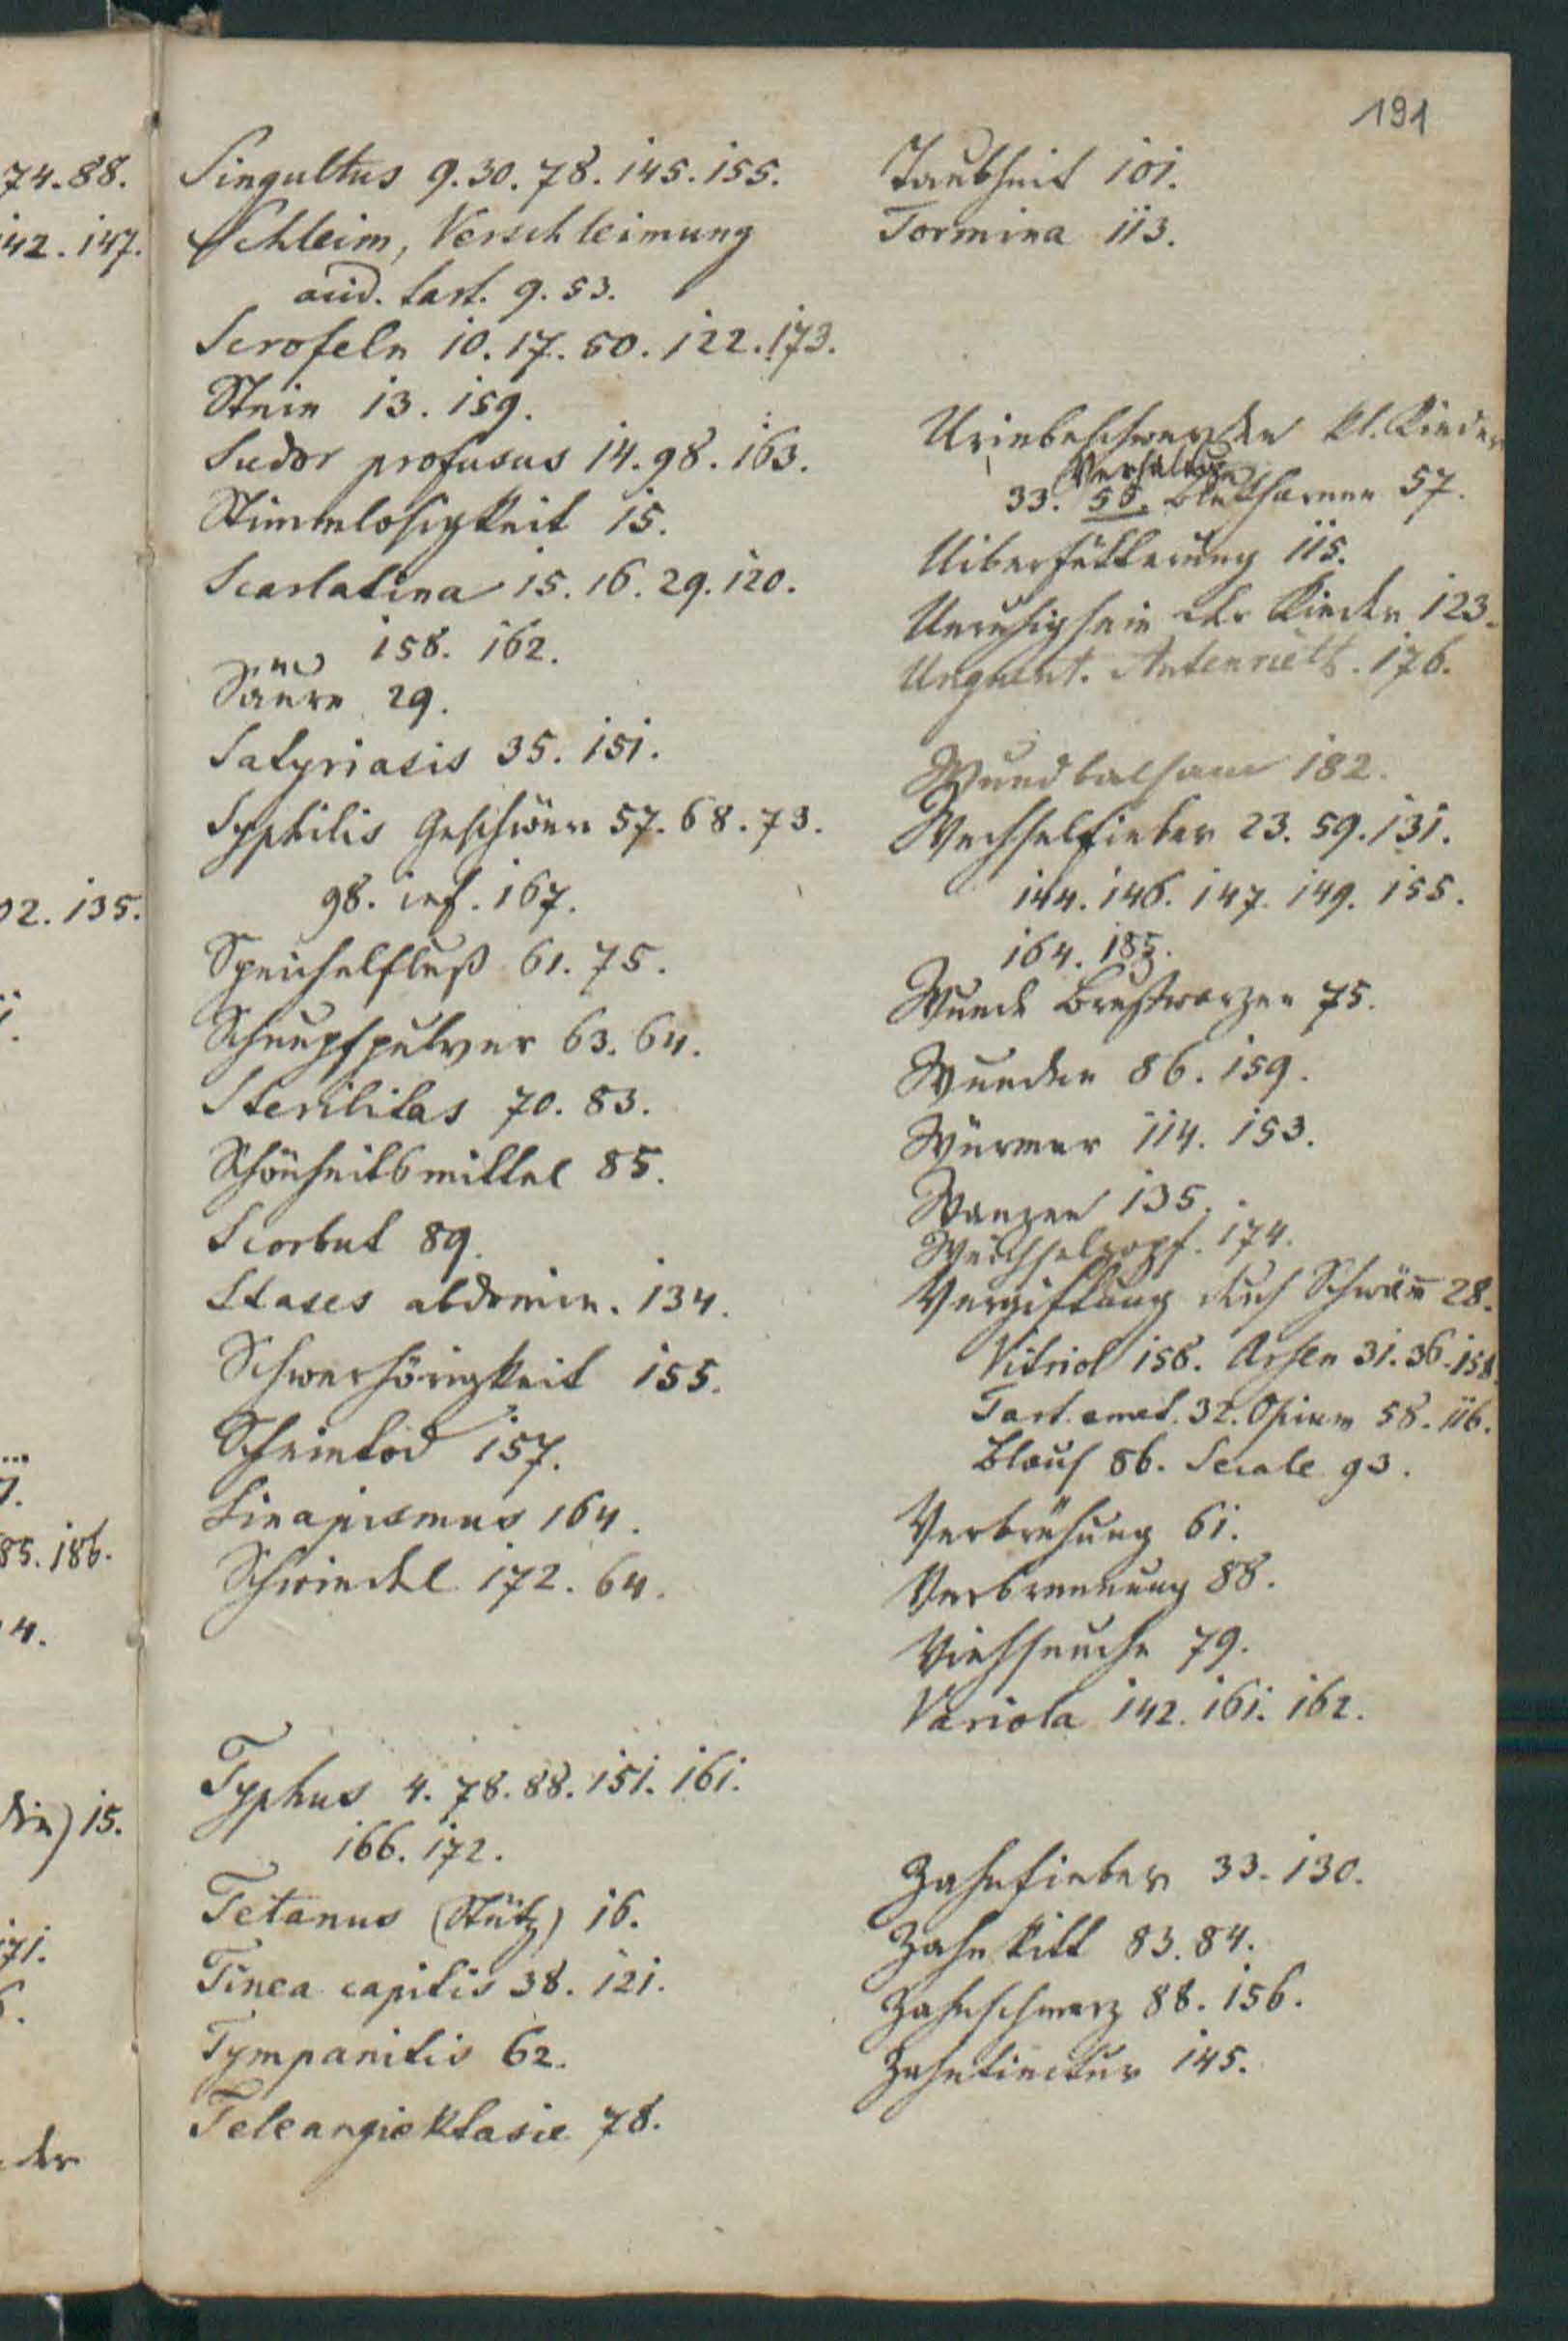 191
74.88.
142. 147.
02. 135.
85. 186.
4.
din) 15.
171.
der
Singultus 9. 30. 78. 145. 155.
Schleim, Verschleimung
acid. tart. 9. 53.
Scrofeln 10. 17. 50. 122. 173.
Stein 13. 159.
Sudor profusus 14. 98. 163.
Stimmlosigkeit 15.
Scarlatina 15. 16. 29. 120.
158. 162.
Säure 29.
Satyriasis 35. 151.
Syphilis Geschwüre 57. 68. 73.
98. inf. 167.
Speichelfluß 61. 75.
Schnupfpulver 63. 64.
Sterilitas 70. 83.
Schönheitsmittel 85.
Scorbut 89.
Stases abdomin. 134.
Schwerhörigkeit 155.
Scheintod 157.
Sinapismus 164.
Schwindel 172. 64.
Typhus 4. 78. 88. 151. 161.
166. 172.
Tetanus (Stütz) 16.
Tinea capitis 38. 121.
Tympanitis 62.
Teleangiektasie 78.
Taubheit 101.
Tormina 113.
Urinbeschwerden kl. Kinder
Verhaltung
33. 58. Blutharnen 57.
Uiberfütterung 115.
Unruhigsein der Kinder 123.
Unguent. Autenriett. 176.
Wundbalsam 182.
Wechselfieber 23. 59. 131.
144. 146. 147. 149. 155.
164. 183.
Wunde Brustwarzen 75.
Wunden 86. 159.
Würmer 114. 153.
Wanzen 135.
Weichselzopf. 174.
Vergiftung durch Schwäm̅ 28.
Vitriol 158. Arsen 31. 36. 158.
Tart. emet. 32. Opium 58. 116.
Blaus 86. Secale 93.
Verbrühung 61.
Verbrennung 88.
Viehseuche 79.
Variola 142. 161. 162.
Zahnfieber 33. 130.
Zahnkitt 83. 84.
Zahnschmerz 88. 156.
Zahntinctur 145.